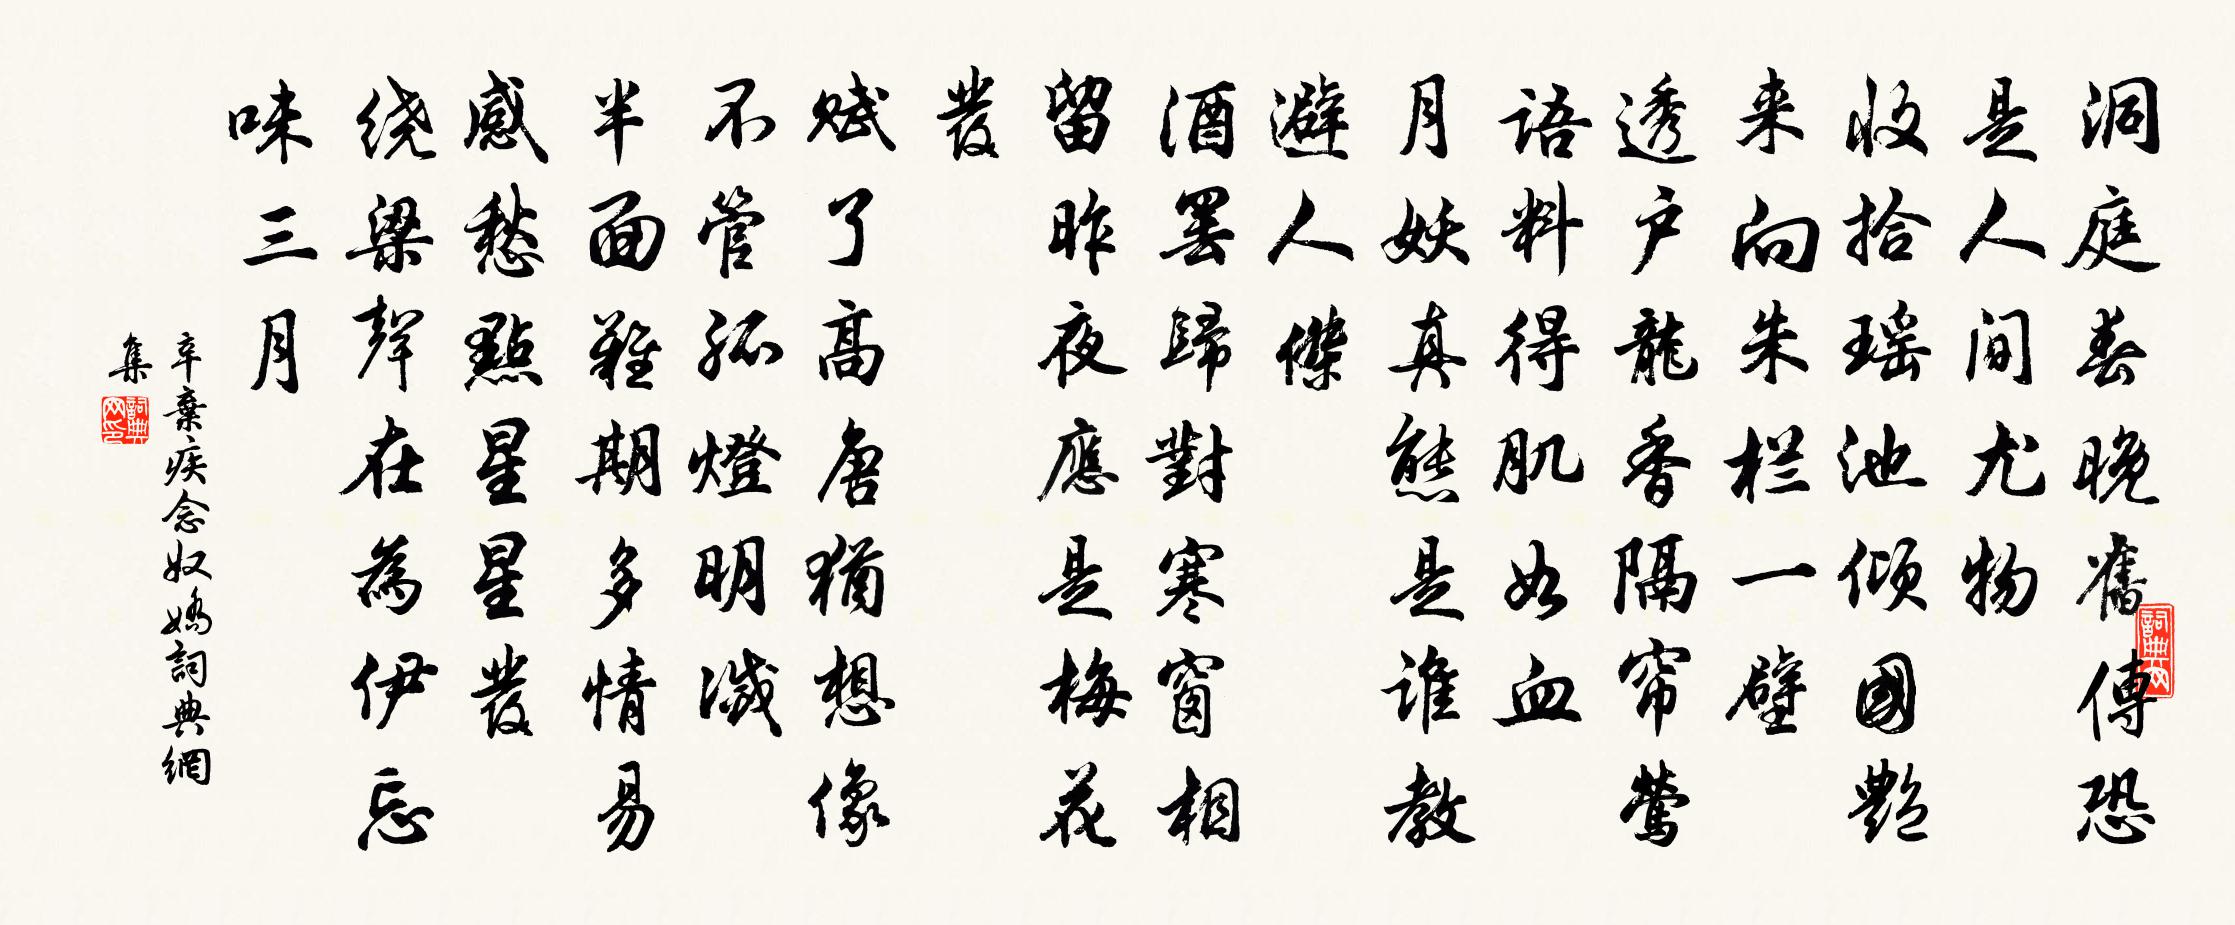 洞庭春晚舊傳恐
是人间尤物
收拾瑶池倾國艷
来向朱栏一壁
透户龍香隔帘鶯
語料得肌如血
月妖真態是谁教
避人傑
酒罢歸對寒窗相
留昨夜應是梅花
發
赋了高唐猶想像
不管孤燈明滅
半面難期多情易
感愁點星星發
绕梁聲在為伊忘
味三月
辛棄疾念奴嬌詞典網
集
詞典网
詞典网印